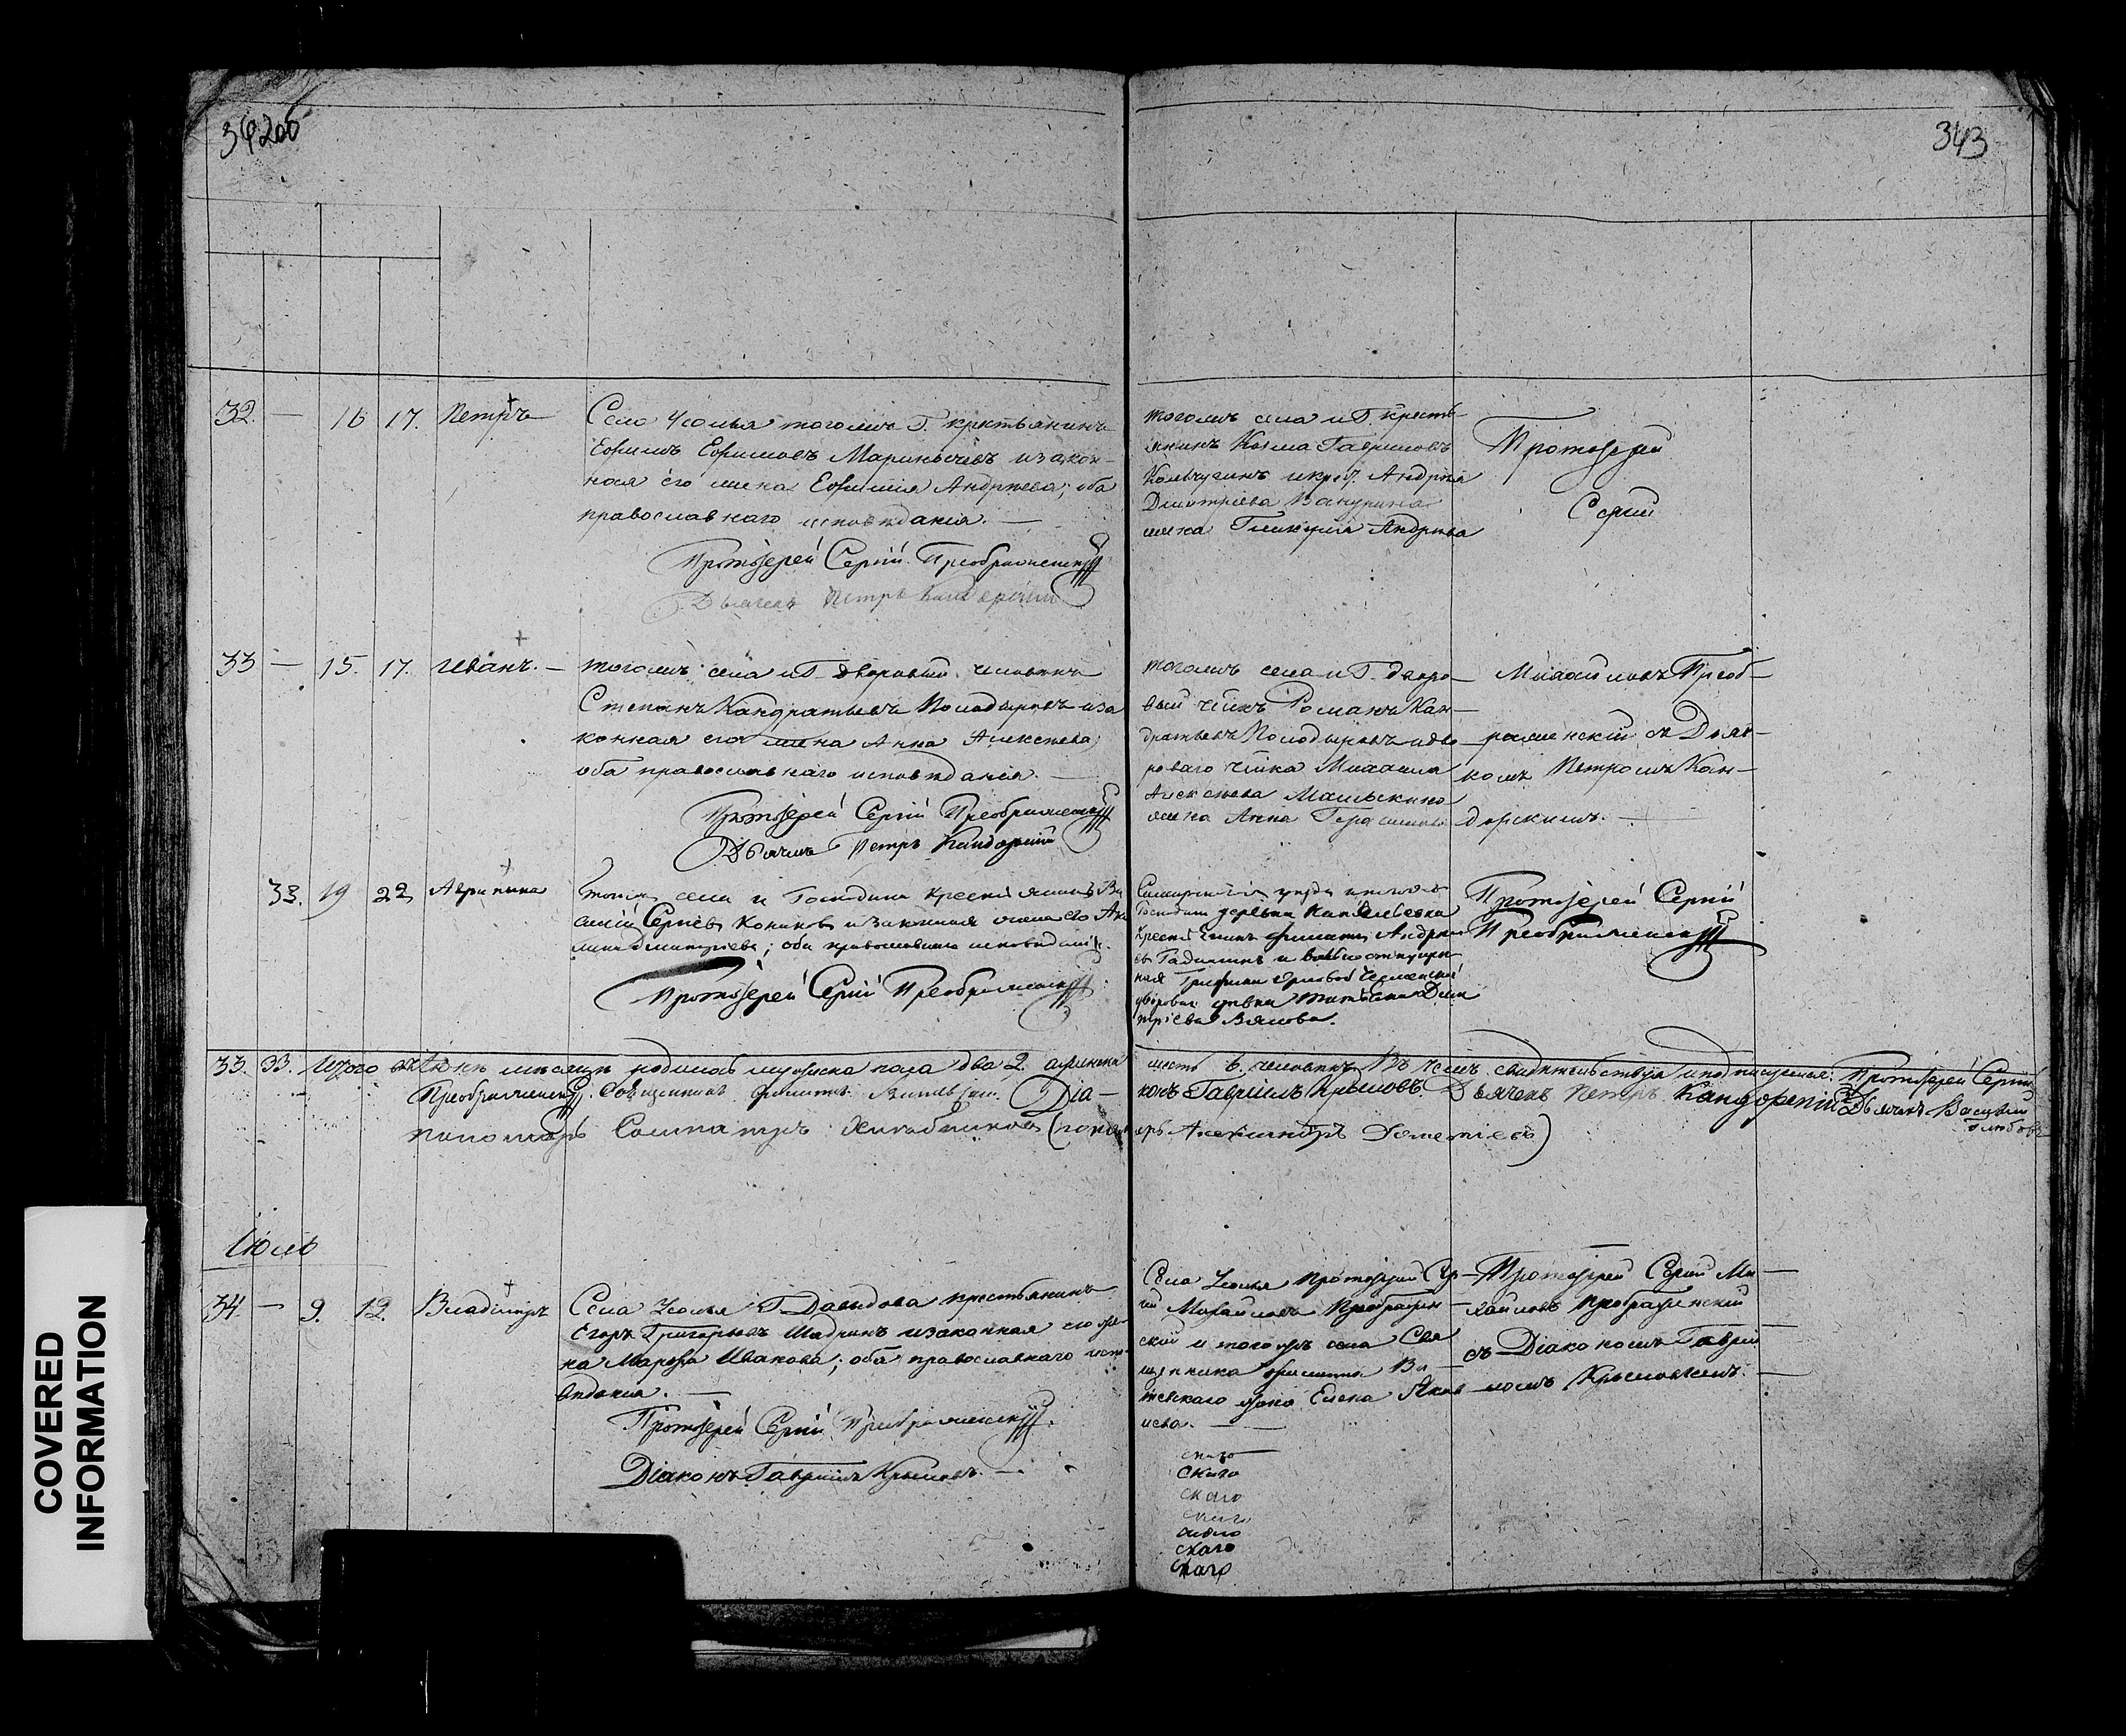 342об
343
32. — 16 17. Петръ
Села Усолья тогожъ Г. крестьянинъ
Ефимъ Ефимовъ
и закон-
ная его жена Евфимія Андреева; оба
православнаго исповѣданія. —
Протоіерей Сергій Преображенскій
Дьячекъ Петръ Кандорскій
тогожъ села и Г. кресть-
янинъ Козма Гавриловъ
Кольчугинъ и крест. Андрея
Дмитріева
жена Гликерія Андреева
Протоіерей
Сергій
33 — 15. 17. Иванъ. —
тогожъ села и Г. дворовый человѣкъ
Степанъ Кандратьевъ Полодыревъ и за
конная его жена Анна Алексѣева;
оба православнаго исповѣданія. —
Протоіерей Сергій Преображенскій
Дьячекъ Петръ Кандорскій
тогожъ села и Г. дворо-
вый чѣлкъ Романъ Кан-
дратьевъ Полодыревъ и дво-
роваго чѣлка Михаила
Алексѣева
жена Анна Герасимова
Михайловъ Преоб-
раженскій съ Дьяч-
комъ Петромъ Кан-
дорскимъ. —
33. 19 22 Агрипина
тогожъ села и Господина крестьянинъ Ва
силій Сергѣевъ Кониковъ и законная жена его Аку
лина Дмитріева; оба православнаго исповѣданія.
Протоіерей Сергій Преображенскій
Господина деревни
крестьянинъ Филипъ Андре
евъ
и
ная Графини Орловой Чесменской
дворовая дѣвка Татьяна Дми
тріева Вялова.
Протоіерей Сергій
Преображенскій
33. 33. Итого въ Іюнѣ мѣсяцѣ родилось мужеска пола два 2. а женска шесть 6. человѣкъ. Въ чемъ свидѣтельствуя и подписуемся: Протоіерей Сергій
Преображенскій. Священникъ Филиппъ Діа- конъ Гавріилъ Крыловъ. Дьячекъ Петръ Кандорскій Дьячекъ Василій
пономарь (пономарь Александръ Дометіевъ)
Іюль
34. — 9. 12. Владиміръ
Села Усолья Г. Давыдова крестьянинъ
Егоръ Григорьевъ Шадринъ и законная его же-
на Марѳа Иванова; оба православнаго испо-
вѣданія. —
Протоіерей Сергій Преображенскій.
Діаконъ Гавріилъ Крыловъ. —
Села Усолья Протоіерей Сер-
гій Михайловъ Преображен-
скій и тогожъ села Свя
щенника Филиппа Ви-
тевскаго жена Елена Яков
лева. —
Протоіерей Сергій Ми-
хайловъ Преображенскій
съ Діакономъ Гаврі
ломъ Крыловымъ. —
скаго
скаго
скаго
скаго
скаго
скаго
скаго
COVERED
INFORMATION